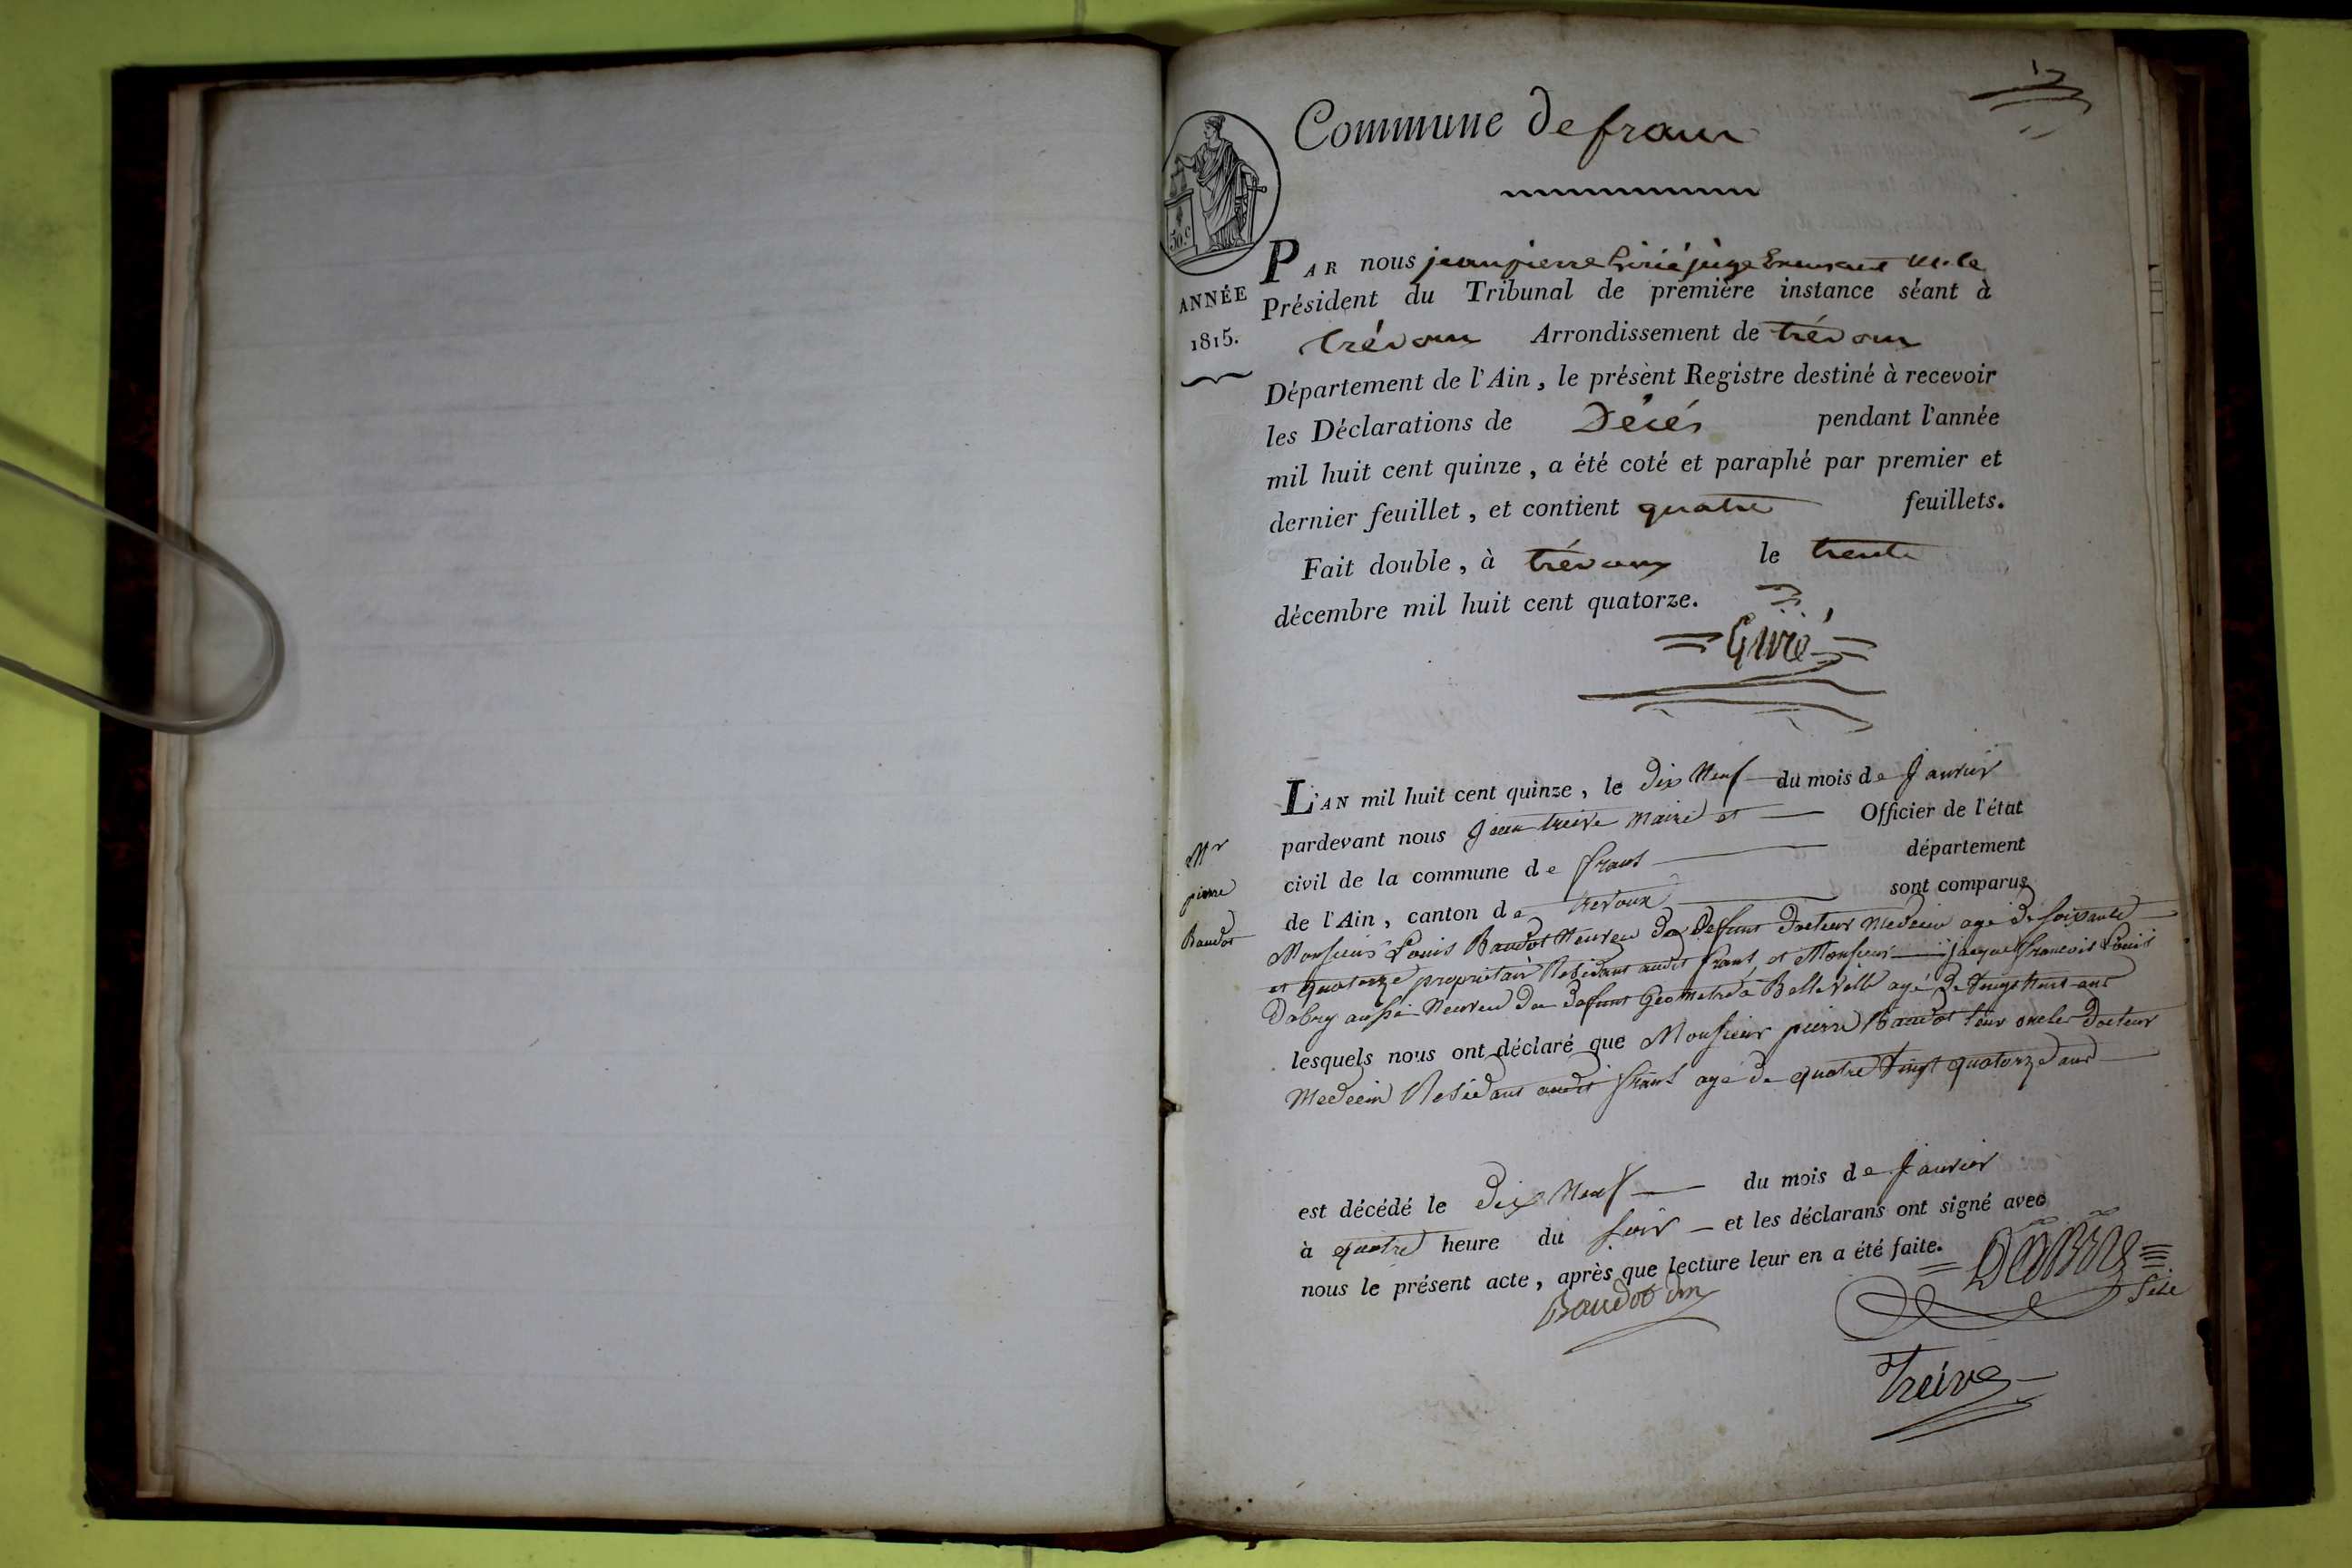 Commune de frans
50.c
ANNÉE
1815.
PAR nous jean pierre Girié juge
Président du Tribunal de première instance séant à
trévoux Arrondissement de trévoux
Département de l'Ain, le présènt Registre destiné à recevoir
les Déclarations de Décés pendant l'année
mil huit cent quinze, a été coté et paraphé par premier et
dernier feuillet, et contient quatre feuillets.
Fait double, à trévoux le trente
décembre mil huit cent quatorze.
Girié
Mr
pierre
Baudot
L'AN mil huit cent quinze, le dix Neuf du mois de Janvier
pardevant nous Jean treive Maire et Officier de l'état
civil de la commune de frans département
de l'Ain, canton de trevoux sont comparus
Monsieur Louis Baudot Neuveu du Defunt docteur Medecin agé de soixante
et quatorze propriétair Residant audit frans, et Monsieur jacque francois Louis
Dabry aussi Neuveu du defunt Geometre a Belleville agé de vingt huit ans
lesquels nous ont déclaré que Monsieur pierre Baudot leur oncle docteur
Medecin Residant audit frans agé de quatre vingt quatorze ans
est décédé le dix Neuf du mois de Janvier
à quatre heure du soir et les déclarans ont signé avec
nous le présent acte, après que lecture leur en a été faite.
Baudot dm
Treive